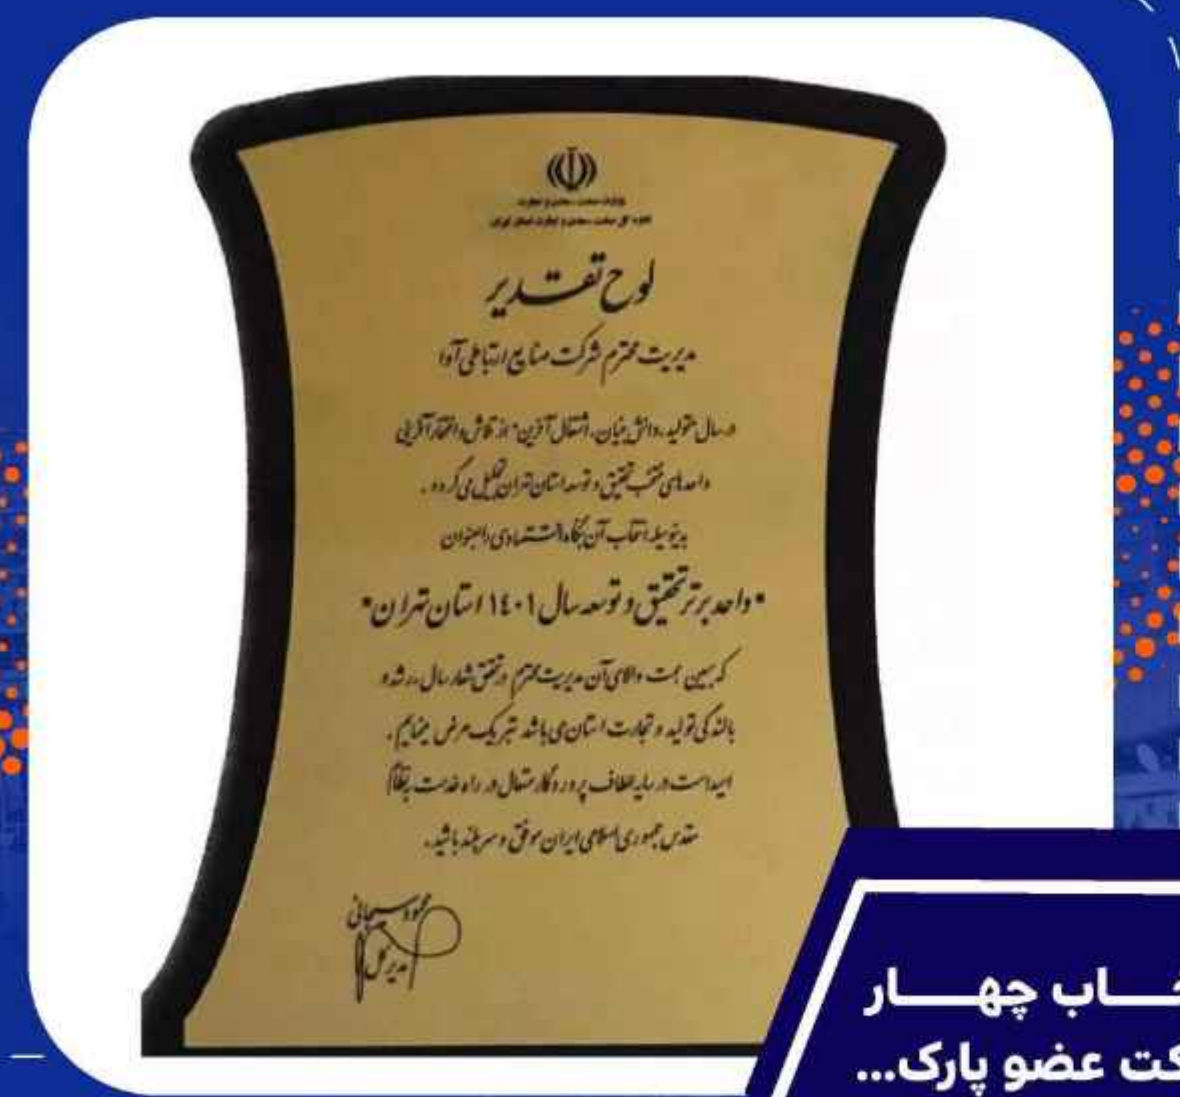 وزارت صنعت، معدن و تجارت
اداره کل صنعت، معدن و تجارت استان تهران
لوح تقدیر
مدیریت محترم شرکت صنایع ارتباطی آوا
در سال "تولید، دانش بنیان، اشتغال آفرین" از تلاش و افتخار آفرینی
واحدهای منتخب تحقیق و توسعه استان تهران تجلیل می گردد.
بدینوسیله انتخاب آن بنگاه اقتصادی بعنوان
"واحد برتر تحقیق و توسعه سال ۱۴۰۱ استان تهران"
که مبین همت والای آن مدیریت محترم در تحقق شعار سال، رشد و
بالندگی تولید و تجارت استان می باشد تبریک عرض مینمایم.
امید است در سایه الطاف پروردگار متعال در راه خدمت به نظام
مقدس جمهوری اسلامی ایران موفق و سربلند باشید.
محمود سیجانی
مدیر کل
ـاب چهار
کت عضو پارک...